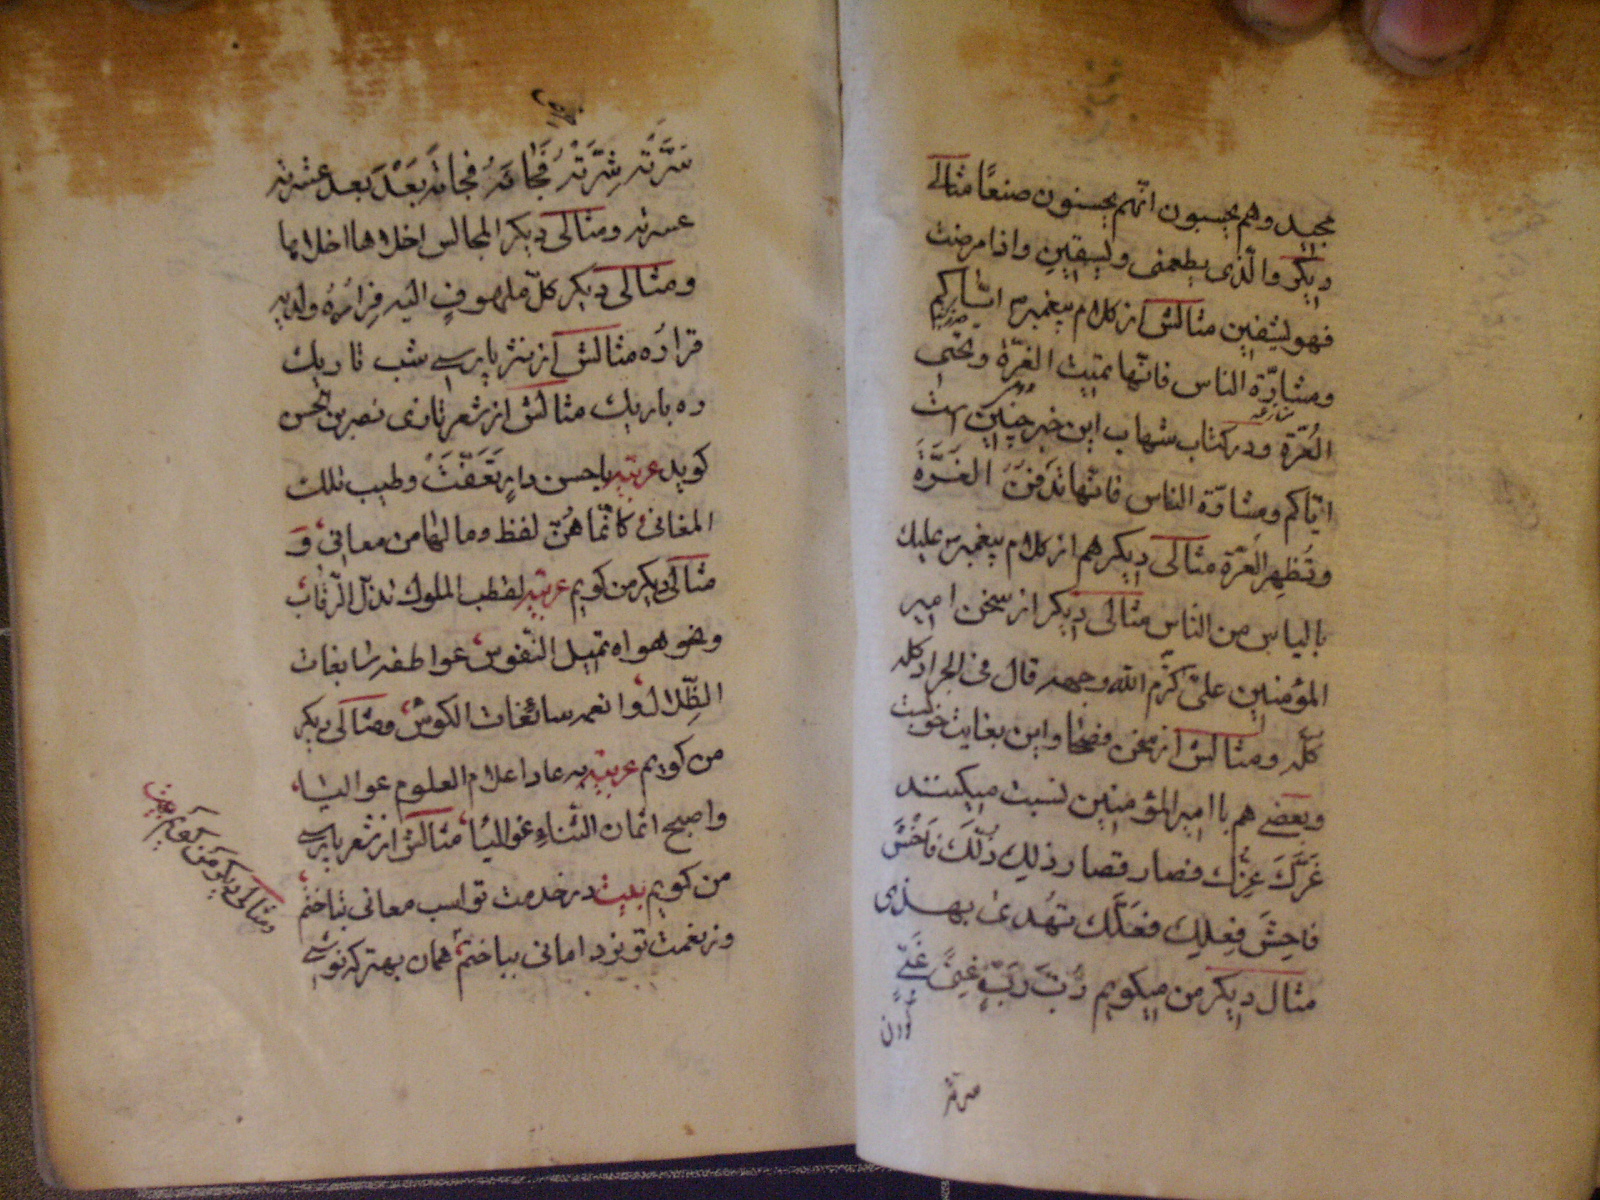 مجید وهم یحسبون انّهم یحسنون صنعًا مثالی
دیکر والّذی یطعمنی ویسقین واذا مرضت
فهو یشفین مثالش از کلام پیغمبر ایّاکم
ومشارّة الناس فانّها تمیت الغرّة وتحیی
العُرّة ودر کتاب شهاب این خبر چنین است
ایّاکم ومشارّة الناس فانّها تَدفنُ الغَرَّةَ
وتَظهِر العَرّة مثالی دیکر هم از کلام پیغمبر علیك
بالیاس من الناس مثالی دیکر از سخن امیر
المؤمنین علیّ کرّم الله وجهه قال فی الجراد کله
کلّه ومثالش از سخن فصحا واین بغایت خوبست
وبعضی هم با امیر المؤمنین نسبت میکنند
غَرَّكَ عِزُّك فصار قصار ذلِك ذُلَّكَ فَاخْشَ
فاحِشَ فِعلِك فعَلَّك تُهدیٰ بهذی
مثال دیکر من میکویم رُبَّ رَبٍّ غنیً غَبیّ
سَرَّته شِرَّتهُ فَجَاتهُ فجاتَه بَعْدَ بعد عشرته
عسرته ومثالی دیکر المجالس اخلاها احلاها
ومثالی دیکر کلّ ملهوفٍ الیه فِرارُهُ ولدیه
قرارُه مثالش از نثر پارسی شب تاریك
ره باریك مثالش از شعر تازی نصر بن الحسن
کوید عربیه یا حسن دایرٍ تَعَفَّتْ وطیب تلك
المغانی کانّما هُنّ لفظ وما لها من معانی وَ
مثالی دیکر من کویم عربیه لقطب الملوك تذلّ الرّقاب
ونحو هواه تمیل النّفوس عواطفه سابغات
الظِّلال وانعمه سائغات الکوس ومثالی دیکر
من کویم عربیه به عاد اعلام العلوم عوالیا
واصبح اثمان الثناءِ غوالیًا مثالش از شعر پارسی
من کویم بیت در خدمت تو اسب معانی بتاختم
وز نعمت تو نزد امانی بباختم همان بهتر که نوشی
مثالی دیکر من کویم بیت